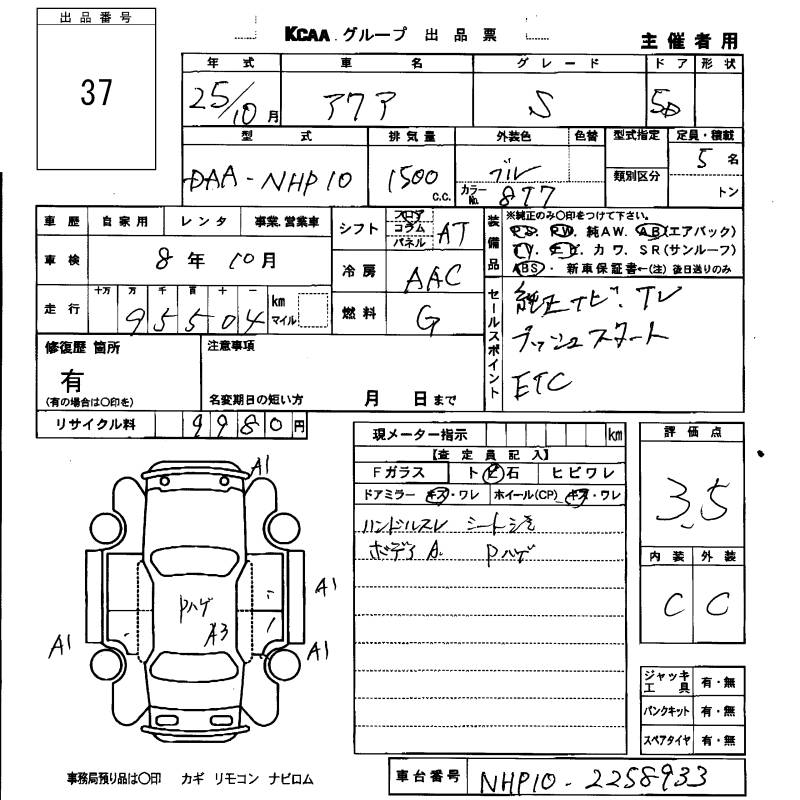 出品番号
37
KCAA グループ 出品票
主催者用
年式 車名 グレード ドア 形状
25/10月 アクア S 5D
型式 排気量 外装色 色替 型式指定 定員・積載
DAA-NHP10 1500 C.C. ブルー 類別区分 5名
カラーNo. 8T7 トン
車歴 自家用 レンタ 事業.営業車
車検 8年10月
走行 十万 万 千 百 十 一 km マイル
95504
シフト フロア コラム パネル AT
冷房 AAC
燃料 G
装備品
※純正のみ〇印をつけて下さい。
PS. PW. 純AW. AB(エアバック)
TV. ナビ. カワ. SR(サンルーフ)
ABS. 新車保証書←(注)後日送りのみ
セールスポイント
純正ナビ、TV
プッシュスタート
ETC
修復歴 箇所
有
(有の場合は〇印を)
注意事項
名変期日の短い方 月 日まで
リサイクル料 9980円
現メーター指示 km
【査定員記入】
Fガラス ト ビ 石 ヒビワレ
ドアミラー キズ・ワレ ホイール(CP) キズ・ワレ
ハンドルスレ シートシミ
ボディA. Pハゲ
評価点
3.5
内装 外装
C C
A1
A1
Pハゲ
A3
A1
A1
ジャッキ工具 有・無
パンクキット 有・無
スペアタイヤ 有・無
事務局預り品は〇印 カギ リモコン ナビロム
車台番号 NHP10-2258933